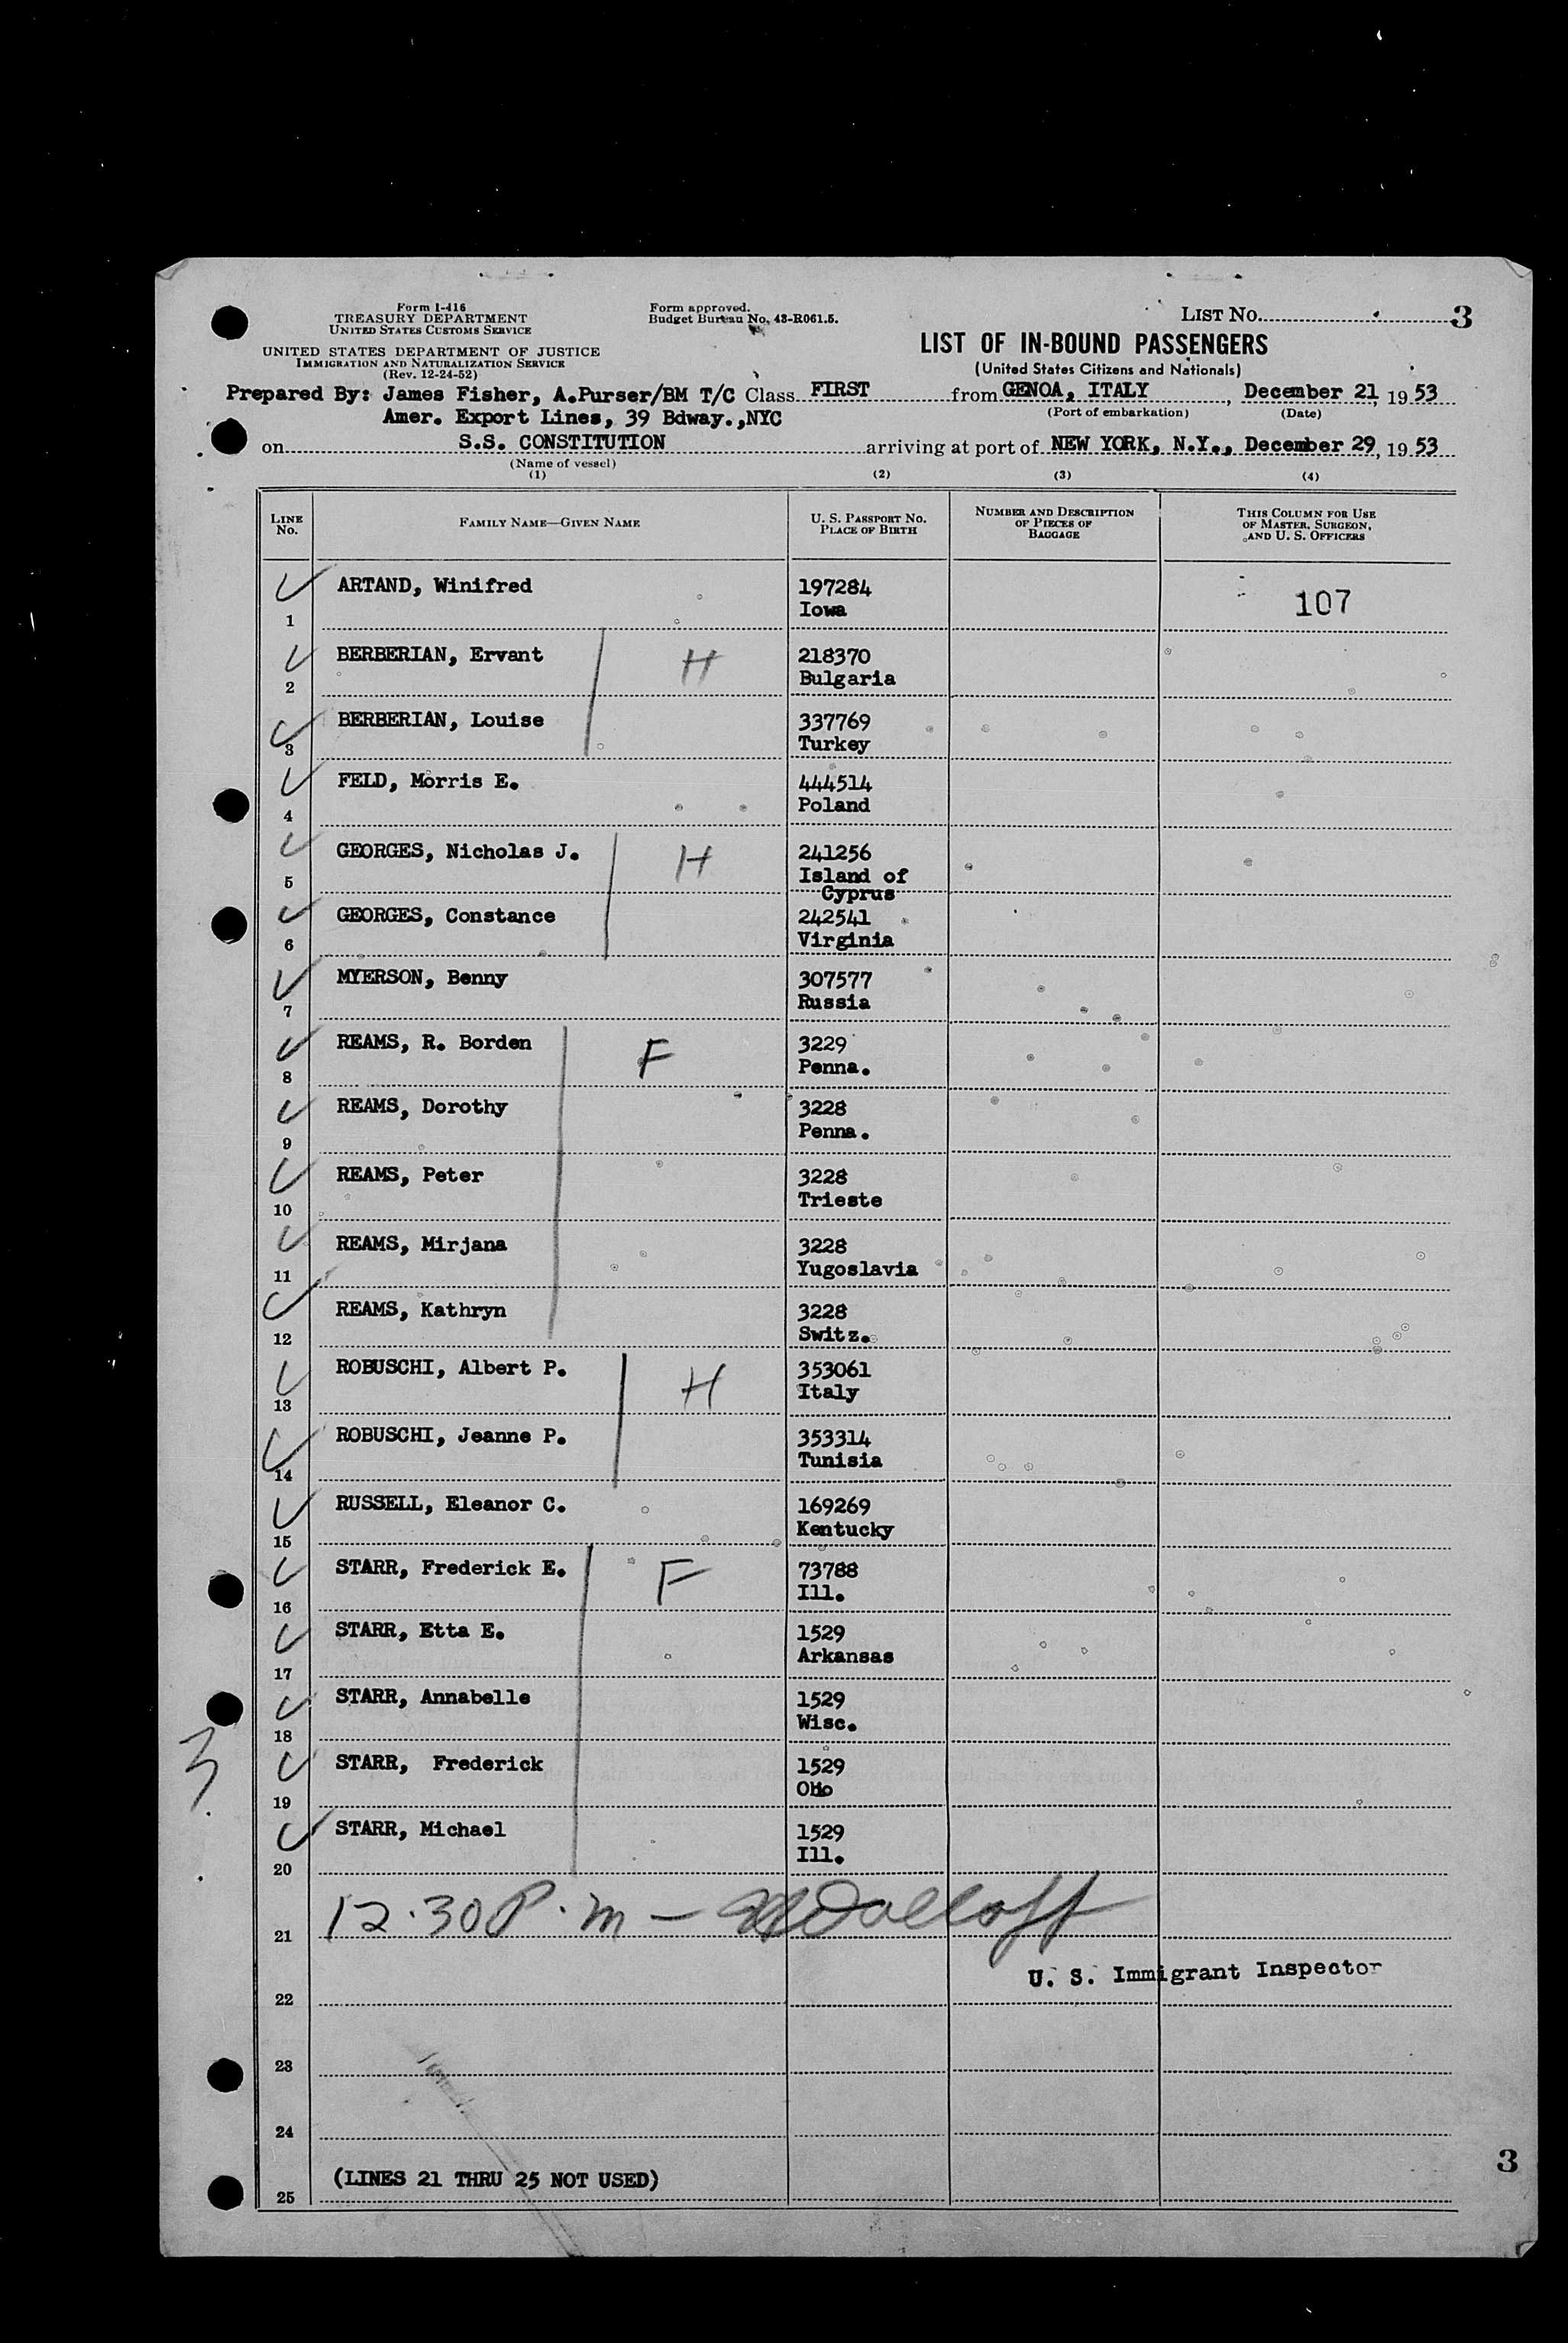 Form I-416
TREASURY DEPARTMENT
UNITED STATES CUSTOMS SERVICE
UNITED STATES DEPARTMENT OF JUSTICE
IMMIGRATION AND NATURALIZATION SERVICE
(Rev. 12-24-52)
Form approved.
Budget Bureau No. 43-R061.5.
LIST NO. 3
LIST OF IN-BOUND PASSENGERS
(United States Citizens and Nationals)
Prepared By: James Fisher, A.Purser/BM T/C Class FIRST from GENOA, ITALY, December 21, 1953
(Port of embarkation) (Date)
Amer. Export Lines, 39 Bdway.,NYC
on S.S. CONSTITUTION arriving at port of NEW YORK, N.Y., December 29, 1953
(Name of vessel)
(1) (2) (3) (4)
LINE NO. FAMILY NAME—GIVEN NAME U. S. PASSPORT NO. PLACE OF BIRTH NUMBER AND DESCRIPTION OF PIECES OF BAGGAGE THIS COLUMN FOR USE OF MASTER, SURGEON, AND U. S. OFFICERS
1 ARTAND, Winifred 197284 Iowa 107
2 BERBERIAN, Ervant H 218370 Bulgaria
3 BERBERIAN, Louise 337769 Turkey
4 FELD, Morris E. 444514 Poland
5 GEORGES, Nicholas J. H 241256 Island of Cyprus
6 GEORGES, Constance 242541 Virginia
7 MYERSON, Benny 307577 Russia
8 REAMS, R. Borden F 3229 Penna.
9 REAMS, Dorothy 3228 Penna.
10 REAMS, Peter 3228 Trieste
11 REAMS, Mirjana 3228 Yugoslavia
12 REAMS, Kathryn 3228 Switz.
13 ROBUSCHI, Albert P. H 353061 Italy
14 ROBUSCHI, Jeanne P. 353314 Tunisia
15 RUSSELL, Eleanor C. 169269 Kentucky
16 STARR, Frederick E. F 73788 Ill.
17 STARR, Etta E. 1529 Arkansas
18 STARR, Annabelle 1529 Wisc.
3
19 STARR, Frederick 1529 Ohio
20 STARR, Michael 1529 Ill.
21 12.30 P.m —
U. S. Immigrant Inspector
22
23
24
3
25 (LINES 21 THRU 25 NOT USED)